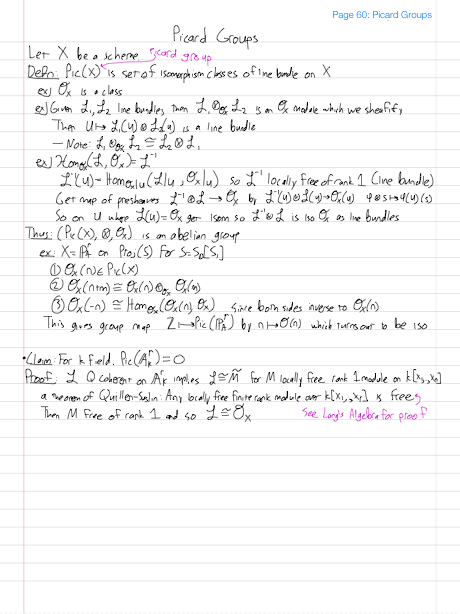 Page 60: Picard Groups
Picard Groups
Let X be a scheme picard group
Defn: Pic(X) is set of isomorphism classes of line bundle on X
ex) O_X is a class
ex) Given L_1, L_2 line bundles, then L_1 ⊗_{O_X} L_2 is an O_X module which we sheafify
Then U ↦ L_1(U) ⊗ L_2(U) is a line bundle
– Note: L_1 ⊗_{O_X} L_2 ≅ L_2 ⊗ L_1
ex) Hom_{O_X}(L, O_X) = L^{-1}
L^{-1}(U) = Hom_{O_X|U}(L|_U, O_X|_U) so L^{-1} locally free of rank 1 (line bundle)
Get map of presheaves L^{-1} ⊗ L → O_X by L^{-1}(U) ⊗ L(U) → O_X(U) φ⊗s ↦ φ(U)(s)
So on U where L(U) = O_X get isom so L^{-1} ⊗ L is iso O_X as line bundles
Thus: (Pic(X), ⊗, O_X) is an abelian group
ex: X = P_A^r on Proj(S) for S = S_0[S_1]
① O_X(n) ∈ Pic(X)
② O_X(n+m) ≅ O_X(n) ⊗_{O_X} O_X(m)
③ O_X(-n) ≅ Hom_{O_X}(O_X(n), O_X) since both sides inverse to O_X(n)
This gives group map Z ↦ Pic(P_A^r) by n ↦ O(n) which turns out to be iso
• Claim: For k field, Pic(A_k^r) = 0
Proof: L Q coherent on A_k^r implies L ≅ M̃ for M locally free rank 1 module on k[x_1,..,x_n]
a theorem of Quillen-Suslin: Any locally free finite rank module over k[x_1,..,x_r] is free
Then M free of rank 1 and so L ≅ O_X See Lang's Algebra for proof